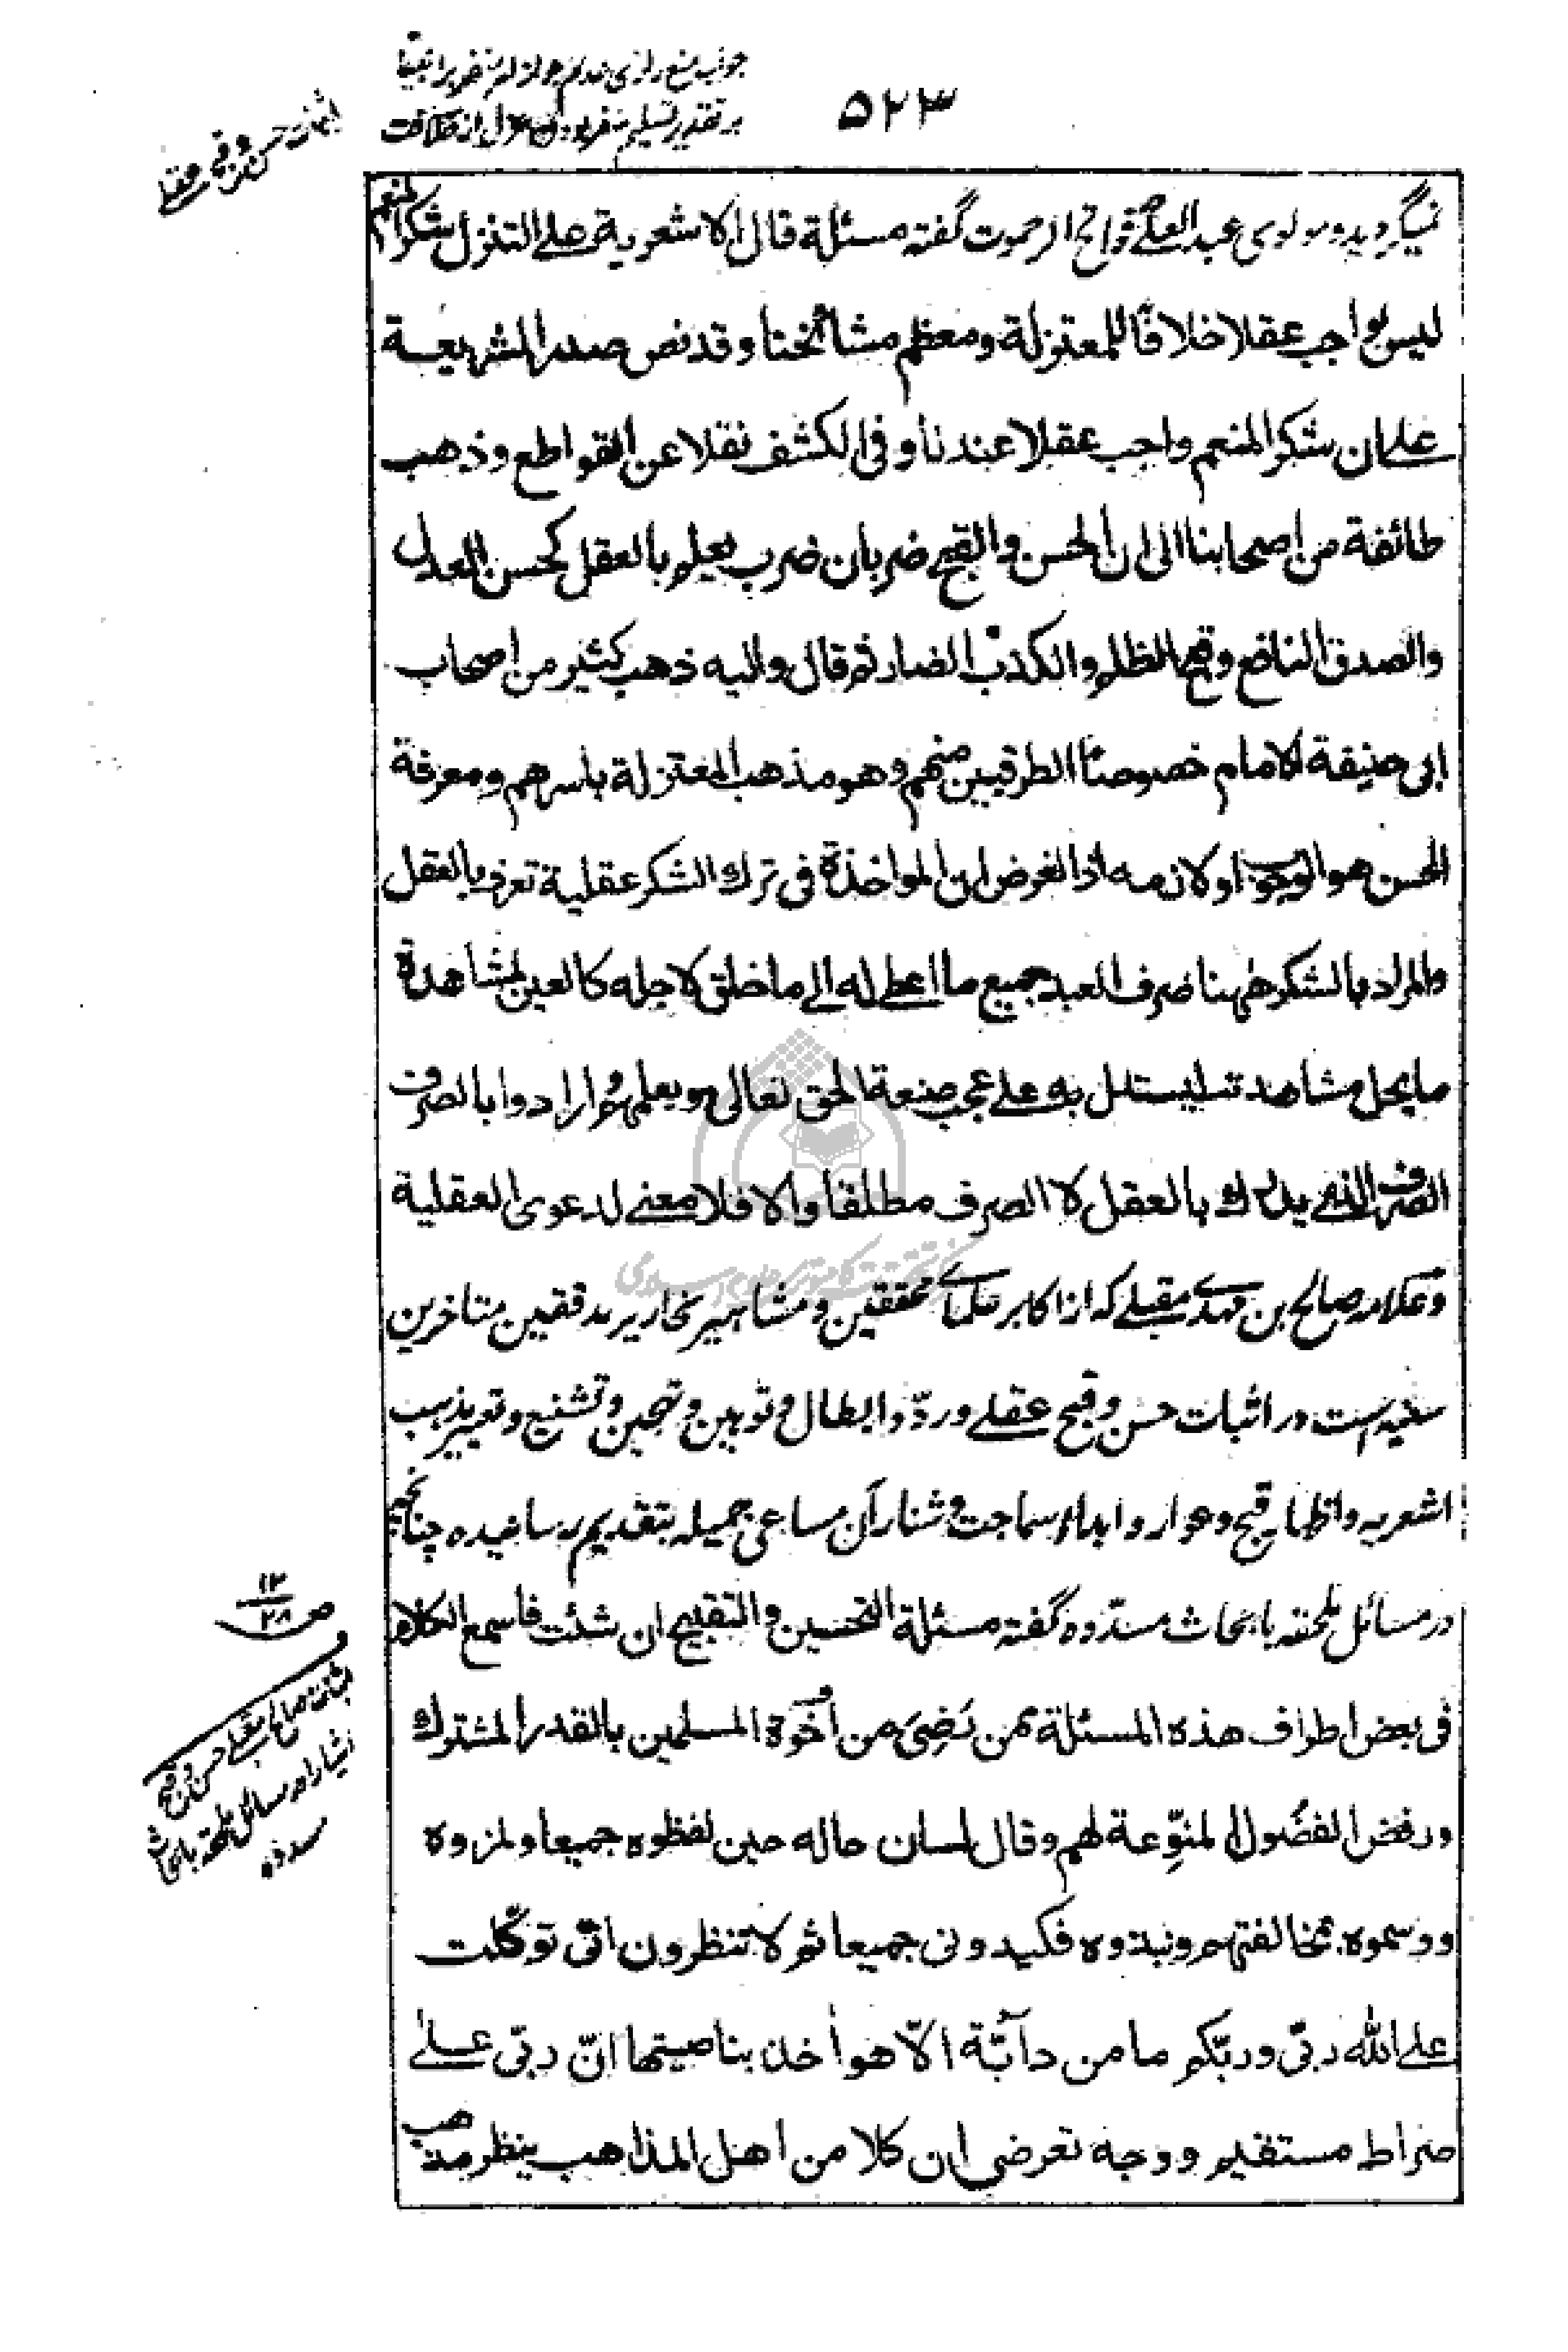 ۵۲۳
جواب منع رازی عدم جواز امر بنفیر انبیا
بر تقدیر تسلیم
اثبات حسن و قبح عقلی
نمیگردید و مولوی عبد العلی در فواتح الرحموت گفته مسئلة قال الاشعرية على التنزل شكر المنعم
ليس بواجب عقلا خلافًا للمعتزلة ومعظم مشائخنا وقد نص صدر الشريعة
على ان شكر المنعم واجب عقلا عندنا وفى الكشف نقلا عن القواطع وذهب
طائفة من اصحابنا الى ان الحسن والقبح ضربان ضرب يعلم بالعقل كحسن العدل
والصدق النافع وقبح الظلم والكذب الضار ثم قال واليه ذهب كثير من اصحاب
ابى حنيفة الامام خصوصًا العراقيين منهم وهو مذهب المعتزلة باسرهم ومعرفة
الحسن هو الوجوب او لازمه اذ الغرض ان المواخذة فى ترك الشكر عقلية تعرف بالعقل
والمراد بالشكر ههنا صرف العبد جميع ما اعطى له الى ما خلق لاجله كالعين لمشاهدة
ما يحل مشاهدته ليستدل به على عجب صنعة الحق تعالى هو يعلم وارادوا بالصرف
الصرف الذى يدرك بالعقل لا الصرف مطلقا والا فلا معنى لدعوى العقلية
وعلامه صالح بن مهدی مقبلی که از اکابر علمای محققین و مشاهیر نحاریر مدققین متاخرین
سنیه است در اثبات حسن و قبح عقلی و ردّ و ابطال و توهین و تهجین و تشنیع و تعییر مذهب
اشعریه و اظهار قبح و عوار و ابداء سماجت و شنار آن مساعی جمیله بتقدیم رسانیده چنانچه
در مسائل ملحقه بابحاث مسدّده گفته مسئلة التحسين والتقبيح ان شئت فاسمع الكلام
فى بعض اطراف هذه المسئلة ممن رَضِىَ من اُخُوّة المسلمين بالقدر المشترك
ورفض الفضول المنوّعة لهم وقال لسان حاله حين لفظوه جميعا ولمزوه
ووسموه بمخالفتهم ونبذوه فكيدونى جميعا ثم لا تنظرون انّى توكّلت
على الله ربّى وربّكم ما من دآبّة الّا هو اٰخذ بناصيتها انّ ربّى على
صراط مستقيم ووجه تعرضى ان كلا من اهل المذاهب ينظر مذهب
ص ۱۲/۲۸
اثبات صالح مقبلی حسن و قبح
اشیا را در مسائل ملحقه بابحاث
مسدده